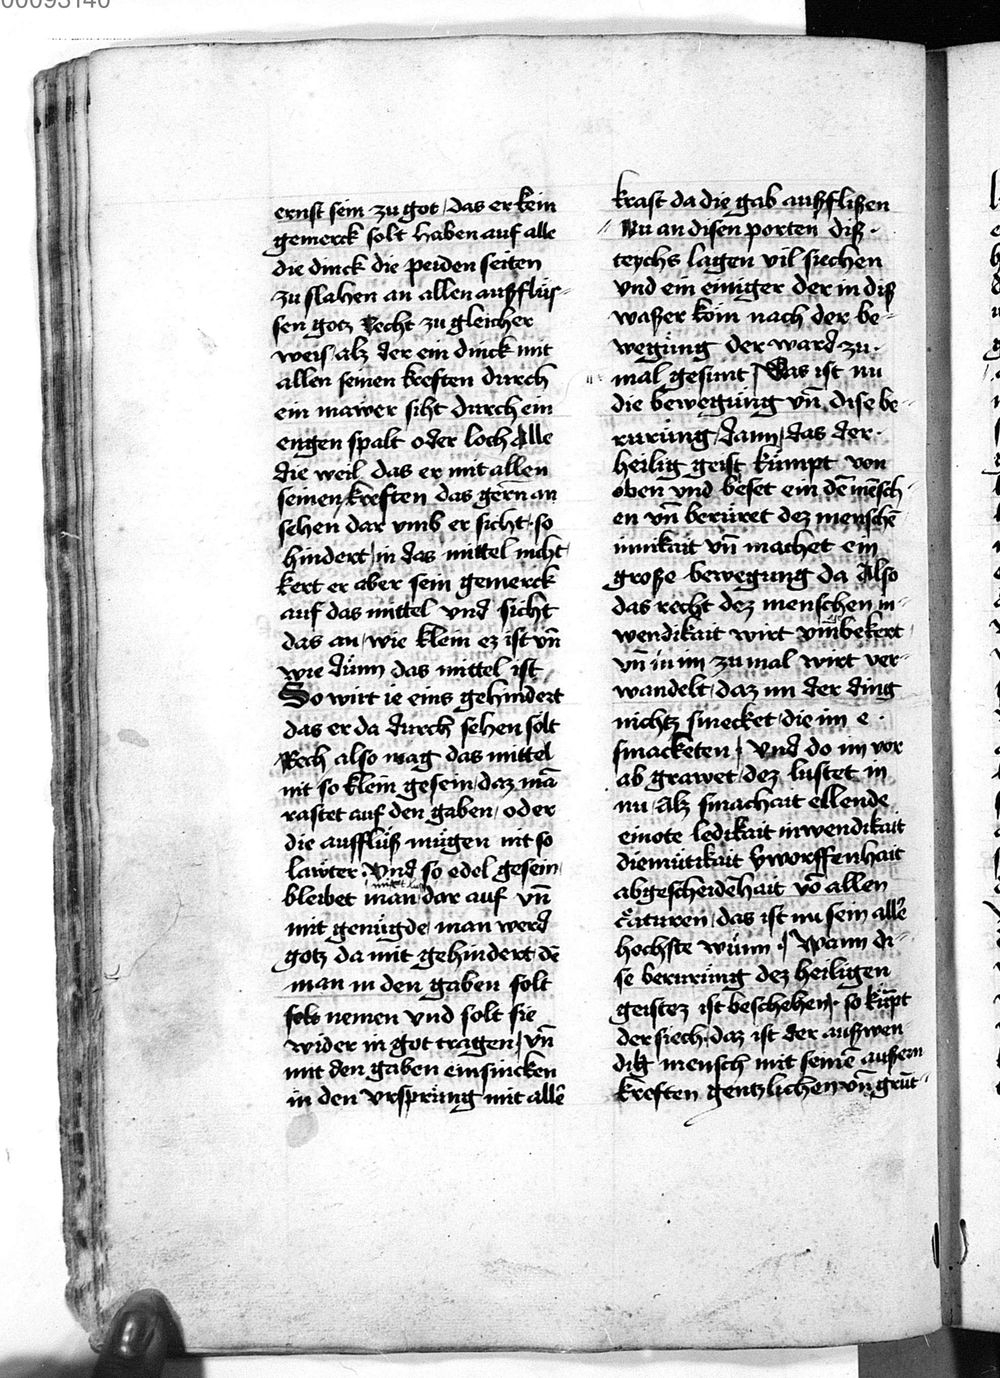 00093140
ernst sein zu got / das er kein
gemerck solt haben auf alle
die dinck die peiden seiten
zu slahen an allen außflüs-
sen gotz Recht zu gleicher
weis / alz der ein dinck mit
allen seinen kreften durch
ein mawer siht durch ein
engen spalt oder loch Alle
die weil das er mit allen
seinen kreften das gern an
sehen dar vmb er sicht · so
hindert / in das mittel nicht /
kert er aber sein gemerck
auf das mittel vnd sicht
das an / wie klein ez ist vn̄
wie dünn das mittel ist
So wirt ie eins gehindert
das er da durch sehen solt
Rech also mag das mittel
nit so klein gesein / daz mā
rastet auf den gaben / oder
die ausflüß mügen nit so
lawter · Vnd so edel gesein /
bleibet man dar auf vn̄
mit genügde / man werd
gotz da mit gehindert · dē
man in den gaben solt
solt nemen vnd solt sie
wider in got tragen / vn̄
mit den gaben einsincken
in den vrsprüng mit allē
kraft da die gab außflißen
// Nu an disen porten diß ·
teychs lagen vil siechen
vnd ein einiger der in diß
waßer kom nach der be-
wegüng der ward zu ·
mal gesunt / Das ist nu
die bewegüng vn̄ dise be-
rurüng / dann / das der ·
heilig geist kumpt von
oben vnd beset ein dē mēsch-
en vn̄ berüret dez menschē
innikait vn̄ machet ein
große bewegung da Also
das recht dez menschen in-
wendikait wirt vmbekert
vn̄ in im zu mal wirt ver-
wandelt / daz im der ding
nichtz smecket / die im e ·
smacketen / Vnd do im vor
ab grawet / dez lustet in
nu / Alz smachait ellende
einote ledikait inwendikait
diemütikait v̄worffenhait
abgescheidēhait vō allen
c̄aturen / das ist nu sein allē
hochste wünn · / Wann di-
se berurüng dez heiligen
geistez ist beschehen · so küpt
der siech · daz ist der außwen-
dig mensch mit seinē außern
kreften gentzlichen vn̄ grūt-